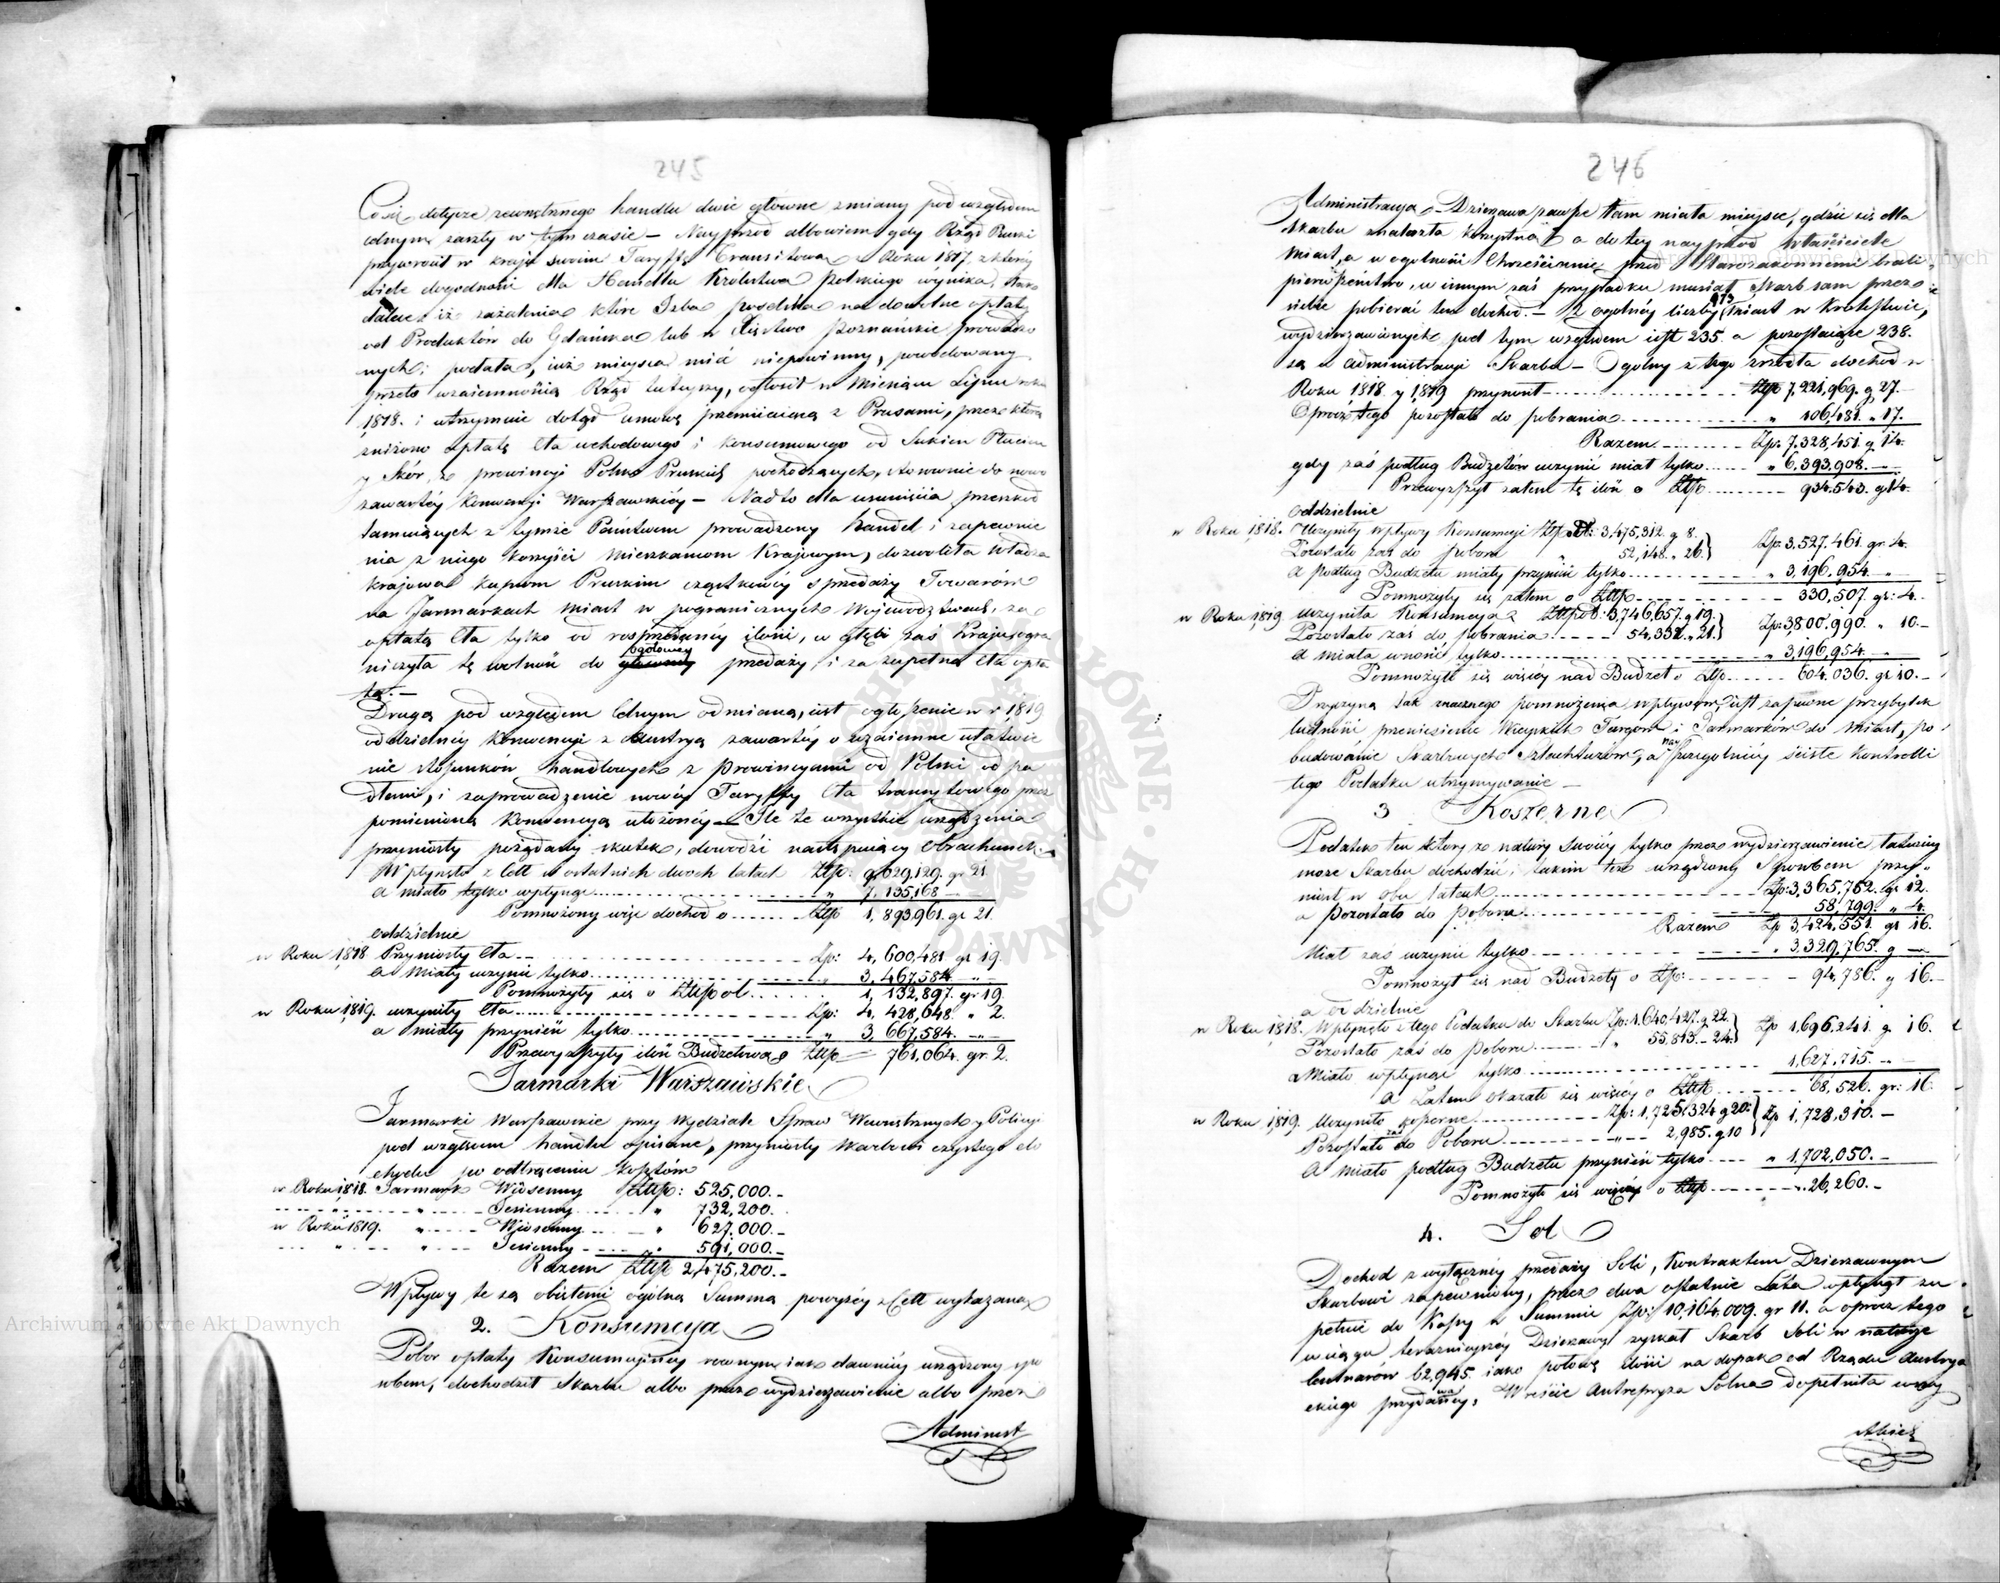 245
Co się dotycze zewnętrznego handlu dwie główne zmiany pod względem
celnym zaszły w tym czasie — Nayprzód albowiem gdy Rząd Ruski
przywrócił w kraju swoim Taryffę Transitową z Roku 1817, z któréy
wiele dogodności dla Handlu Królestwa Polskiego wynika, tako
daléce iż zażalenia które Izba Poselska na dowolne opłaty
od Produktów do Gdańska lub w Xięstwo Poznańskie prowadzo
nych; podała, iuż mieysca mieć niepowinny, powodowany
przeto wzaiemnością Rząd tuteyszy, ogłosił w Miesiącu Lipcu roku
1818. i utrzymuie dotąd umowę przemiiaiącą z Prusami, przez którą
zniżono opłatę Cła wchodowego i konsumowego od Sukien Płócien
y Skór, z prowincyi Polsko Pruskich pochodzących, stosownie do nowo
zawartéy Konwencyi Warszawskiéy — Nadto dla usunięcia przeszkód
tamuiących z tymże Państwem prowadzony handel i zapewnie
nia z niego korzyści Mieszkańcom Krajowym, dozwoliła Władza
krajowa kupcom Pruskim cząstkowéy sprzedaży Towarów
na Jarmarkach Miast w pogranicznych Województwach, za
opłatą Cła tylko od rosprzedanéy ilości, w głębi zaś Kraju ogra
niczyła tę wolność do główney ogółowey przedaży i za zupełną Cła opła
tą. —
Drugą pod względem Celnym odmianą, iest ogłoszenie w r. 1819
oddzielnéy Konwencyi z Austryą zawartéy o wzaiemne ułatwie
nie stosunków handlowych z Prowincyami od Polski odpa
dłemi, i zaprowadzenie nowéy Taryffy Cła transytowego przez
pomienioną Konwencyą ułożonéy — Ile te wszystkie urządzenia
przyniosły pożądany skutek, dowodzi następuiący Obrachunek.
Wpłynęło z Ceł w ostatnich dwóch latach Złlp: 9,029,129. gr 21
a miało tylko wpłynąć " 7,135,168 —
Pomnożony więc dochód o Złlp 1,893,961. gr 21.
oddzielnie
w Roku 1818 Przyniosły Cła Zp: 4,600,481 gr 19.
a miały uczynić tylko " 3,467,584 "
Pomnożyły się o Złlpol. 1,132,897. gr 19.
w Roku 1819. uczyniły Cła Zp: 4,428,648 " 2.
a miały przynieść tylko " 3,667,584. —
Przewyższyły ilość Budżetową Złlp 761,064. gr. 2.
Jarmarki Warszawskie
Jarmarki Warszawskie przy Wydziale Spraw Wewnętrznych y Policyi
pod względem handlu opisane, przyniosły Skarbowi czystego do
chodu po odtrąceniu kosztów
w Roku 1818. Jarmark Wiosenny Złlp: 525,000. —
" " Jesienny " 732,200. —
w Roku 1819. " Wiosenny " 627,000. —
" " Jesienny " 591,000. —
Razem Złlp 2,475,200. —
Wpływy te są obięte ogólną Summą powyżéy z Ceł wykazaną
2. Konsumcya
Pobór opłaty Konsumcyinéy rownym iako dawniéy urządzony spo
sobem, dochodził Skarbu albo przez wydzierżawienie albo przez
Administ
246
Administracyą. Dzierżawa zawsze tam miała mieysce, gdzie się dla
Skarbu znalazła korzystną a do tey nayprzód Właściciele
Miast, a w ogólności Chrześcianie przed Starozakonnemi brali
pierwszeństwo, w innym zaś przypadku musiał Skarb sam przez
siebie pobierać ten dochód. — Z ogólnéy liczby 473 Miast w Królestwie,
wydzierżawionych pod tym względem iest 235. a pozostaiące 238.
są w Administracyi Skarbu — Ogólny z tego źródła dochód w
Roku 1818 y 1819 przyniósł Złlp 7,221,969. g 27.
Oprócz tego pozostało do pobrania " 106,481. " 17.
Razem Zp. 7,328,451. g 14.
gdy zaś podług Budżetów uczynić miał tylko " 6,393,908. —
Przewyższył zatem tę ilość o Złlp 934,543. g 14.
oddzielnie
w Roku 1818. Uczyniły wpływy Konsumcyi Złlpol: 3,475,312. g 8.
Pozostało zaś do poboru " 52,148. " 26. Zp 3,527,461. gr. 4.
a podług Budżetu miały przynieść tylko " 3,196,954. "
Pomnożyły się zatem o Złlp 330,507. gr: 4.
w Roku 1819 uczyniła Konsumcya Złlpol: 3,746,657. g 19.
Pozostało zaś do pobrania 54,332. " 21. Zp: 3,800,990. " 10. —
a miała wność tylko " 3,196,954. —
Pomnożył się więcéy nad Budżet o Złp. 604,036. gr 10. —
Przyczyną tak znacznego pomnożenia wpływów, iest zapewne przybytek
ludności, przeniesienie Wieyskich Targów i Jarmarków do Miast, po
budowanie Skarbowych Szlachtuzów, a nayszczególniéy ścisłe kontrolli
tego Podatku utrzymywanie —
3 Koszerne
Podatek ten który ze natury swoiéy tylko przez wydzierżawienie łatwiey
może Skarbu dochodzić, takim też urządzony Sposobem przy-
niósł w obu latach Zp: 3,365,752. gr 12.
a pozostało do poboru 58,799. " 4.
Razem Zp 3,424,551. gr 16.
Miał zaś uczynić tylko " 3,329,765. g —
Pomnożył się nad Budżety o Zp: 94,786. g 16. —
a oddzielnie
w Roku 1818. Wpłynęło z tego Podatku do Skarbu Zp: 1,640,427. g 22.
Pozostało zaś do poboru " 55,813. — 24. Zp 1,696,241. g 16.
a Miało wpłynąć tylko 1,627,715. —
a Zatem okazało się więcéy o Złlp 68,526. gr: 16.
w Roku 1819. Uczyniło koszerne Zp: 1,725,324 g 20.
Pozostało zaś do Poboru " 2,985. g 10 Zp 1,728,310. —
a Miało podług Budżetu przynieść tylko " 1,702,050. —
Pomnożyło się więcéy o Złlp " 26,260. —
4. Sol
Dochód z wyłącznéy przedaży Soli, Kontraktem Dzierżawnym
Skarbowi zapewniony, przez dwa ostatnie Lata wpłynął zu
pełnie do Kassy w Summie Zp: 10,164,009. gr 11. a oprócz tego
w ciągu teraźnieyszéy Dzierżawy zyskał Skarb Soli w naturze
Centnarów 62,945. iako połowę ilości na dopak od Rządu Austrya
ckiego przydawanéy, Wreście Antrepryza Solna dopełniła wszy